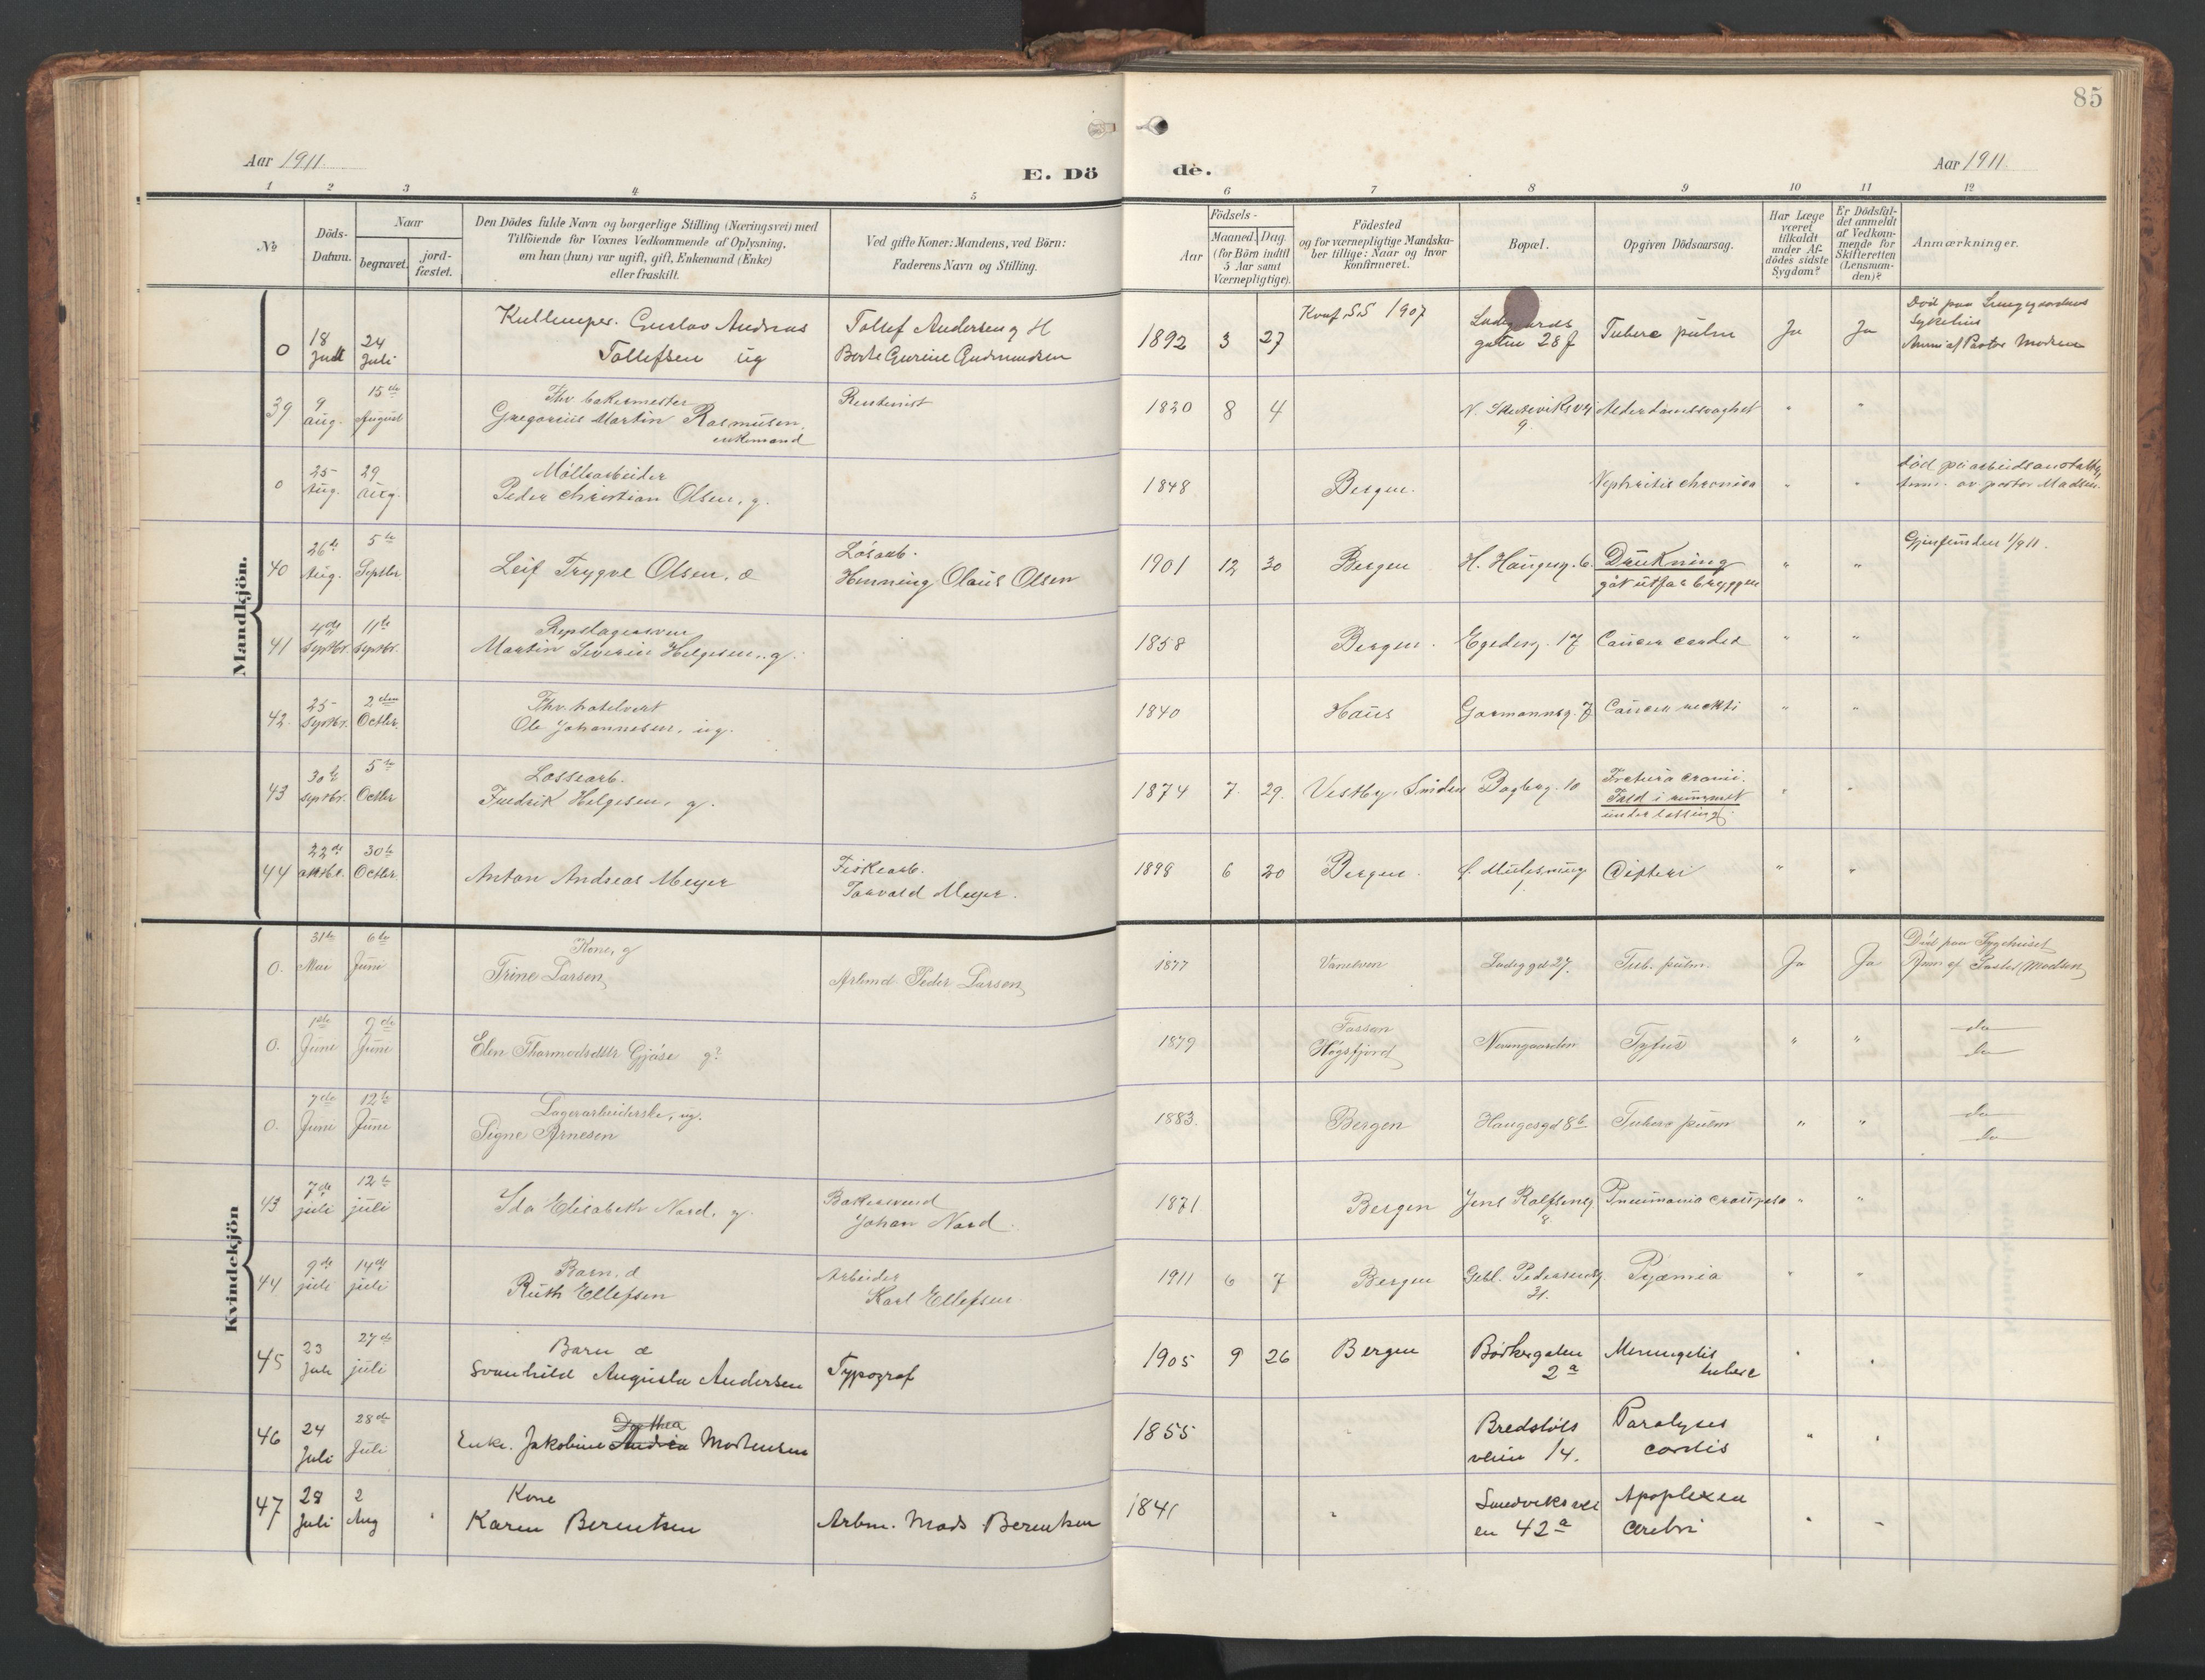 85
Aar 1911.
E. Dö
de.
Aar 1911.
1 2 3 4 5 6 7 8 9 10 11 12
No
Döds-
Datum.
Naar
begravet.
jord-
fæstet.
Den Dödes fulde Navn og borgerlige Stilling (Næringsvei) med
Tilföiende for Voxnes Vedkommende af Oplysning,
om han (hun) var ugift, gift, Enkemand (Enke)
eller fraskilt.
Ved gifte Koner: Mandens, ved Börn:
Faderens Navn og Stilling.
Födsels-
Aar
Maaned. Dag.
(for Börn indtil
5 Aar samt
Værnepligtige).
Födested
og for værnepligtige Mandska-
ber tillige: Naar og hvor
konfirmeret.
Bopæl.
Opgiven Dödsaarsag.
Har Læge
været
tilkaldt
under Af-
dödes sidste
Sygdom?
Er Dödsfal-
det anmeldt
af Vedkom-
mende for
Skifteretten
(Lensman-
den)?
Anmærkninger.
Mandkjön.
0 18 Juli 24 Juli
Gustav Andreas
Tollefsen ug
Tollef Andersen
Gudmundsen
1892 3 27
Konf. 1907
gaten 28
Tuberc pulm
Ja Ja
Sykehus
39 9 Aug. 15de August
Fhv. bakermester
Gregorius Martin Rasmusen,
enkemand
Rentenist
1820 8 4
9.
Alderdomssvaghet
" "
0 25 Aug. 29 Aug.
Möllearbeider
Peder Christian Olsen, g.
1848
Bergen.
Nephritis chronica
" "
död på arbeidsanstalten,
Anm. av pastor Madsen.
40 26de Aug. 5te Septbr
Leif Trygve Olsen. æ
Lösarb.
Henning Olaus Olsen
1901 12 30
Bergen
H. Haugesg. 6.
Drukning
gik utfor bryggen
" "
Gjenfunden 1/9 11.
41 4de Septbr. 11te Septbr.
Repslagersvend
Martin Severin Helgesen, g.
1858
Bergen.
Egedesg. 17
Cancer
" "
42. 25 Septbr. 2den Octbr.
Fhv. hotelvert
Ole Johannesen, ug.
1840
Haus
Garmannsg. 7
Cancer rekti
" "
43 30te septbr. 5te Octbr
Lossearb.
Fredrik Helgesen, g.
1874 7. 29.
Vestby,
10
cranii.
Fald i rummet
under lossing
44 22de 30te Octbr.
Anton Andreas Meyer
Fiskearb.
Torvald Meyer.
1898 6 20
Bergen.
Difteri
" "
Kvindekjön
0. 31te Mai 6te Juni
Kone, g
Trine Larsen
Arbmd. Peder Larsen
1877
Vanelven
Ladeggd 27.
Tub. pulm.
Ja Ja
Död paa Sygehuset
Anm af Pastor Madsen
0. 1ste Juni 9de Juni
Elen Thormodsdtr Gjöse g?
1879
Fossan
Högsfjord
Neumgaarden
Tyfus
" "
do
do
0. 7de Juni 12te Juni
Lagerarbeiderske, ug.
Signe Arnesen
1883.
Bergen
Haugesgd 8b
Tuberc pulm
" "
do
do
43 7de juli 12te juli
Ida Elisabeth Nord, g.
Bakersvend
Johan Nord.
1871
Bergen
Jens Rolfsensg
8.
Pneumonia crouposa
" "
44 9de juli 14de juli
Barn, æ
Ruth Ellefsen
Arbeider
Karl Ellefsen
1911 6 7
Bergen
Gebl. Pedersensg.
31.
Pyæmia
" "
45 23 Juli 27de juli
Barn æ
Svanhild Augusta Andersen
Typograf
1905 9 26
Bergen
Bödkergaten
2a
Meningetis
tuberc
" "
46 24 Juli 28de Juli
Dorthea
Enke. Jakobine Andrea Mortensen
1855
Bredstöls
veien 14.
Paralyses
cordis
" "
47 28 Juli 2 Aug
Kone
Karen Berentsen
Arbm. Mads Berentsen
1841
"
Sandviksvei
en 42a
Apoplexia
cerebri
" "